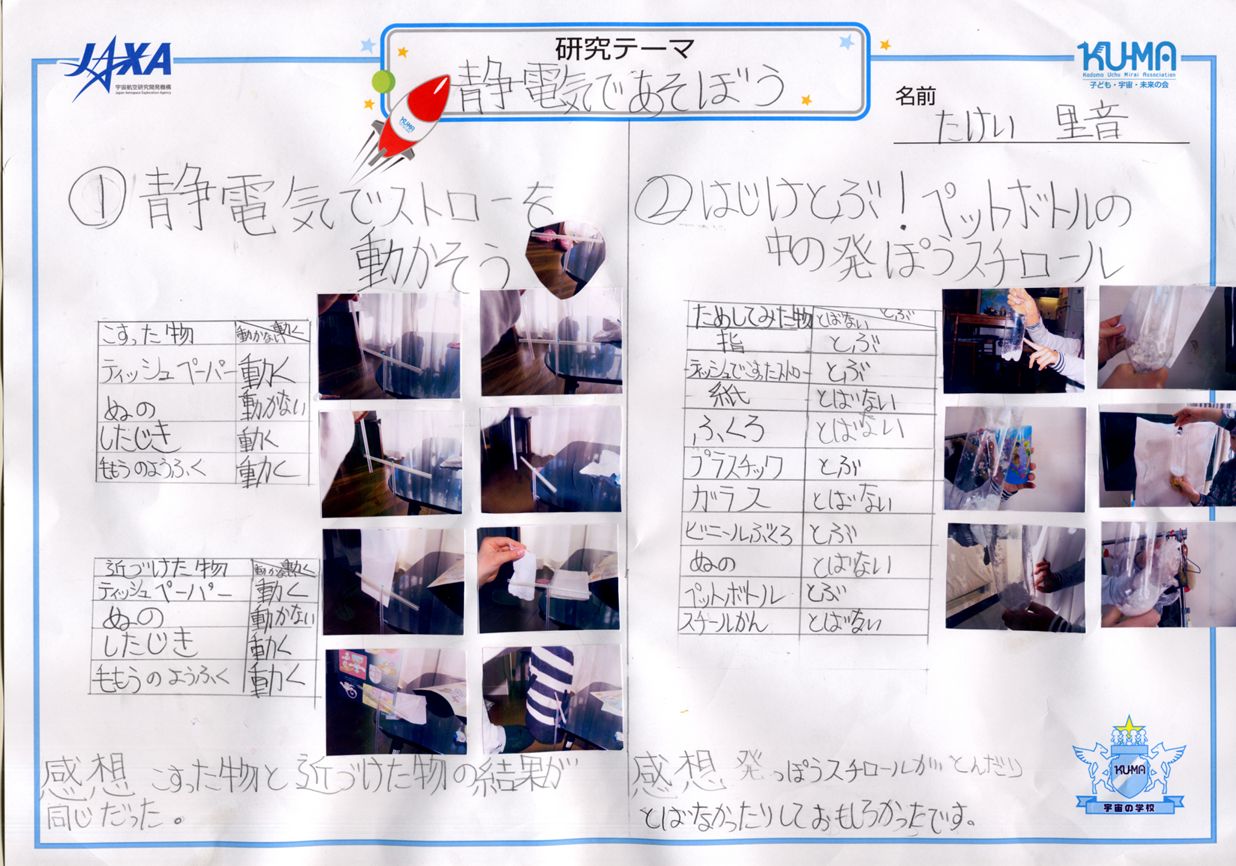 JAXA
宇宙航空研究開発機構
Japan Aerospace Exploration Agency
研究テーマ
静電気であそぼう
KUMA
KUMA
Kodomo Uchu Mirai Association
子ども・宇宙・未来の会
名前
たけい 里音
①静電気でストローを
動かそう
こすった物 動かない 動く
ティッシュペーパー 動く
ぬの 動かない
したじき 動く
毛もうのようふく 動く
近づけた物 動かない 動く
ティッシュペーパー 動く
ぬの 動かない
したじき 動く
毛もうのようふく 動く
感想 こすった物と近づけた物の結果が
同じだった。
②はじけとぶ!ペットボトルの
中の発ぽうスチロール
ためしてみた物 とばない とぶ
指 とぶ
ティッシュでこすったストロー とぶ
紙 とばない
ふくろ とばない
プラスチック とぶ
ガラス とばない
ビニールぶくろ とぶ
ぬの とばない
ペットボトル とぶ
スチールかん とばない
感想 発っぽうスチロールがとんだり
とばなかったりしておもしろかったです。
KUMA
宇宙の学校